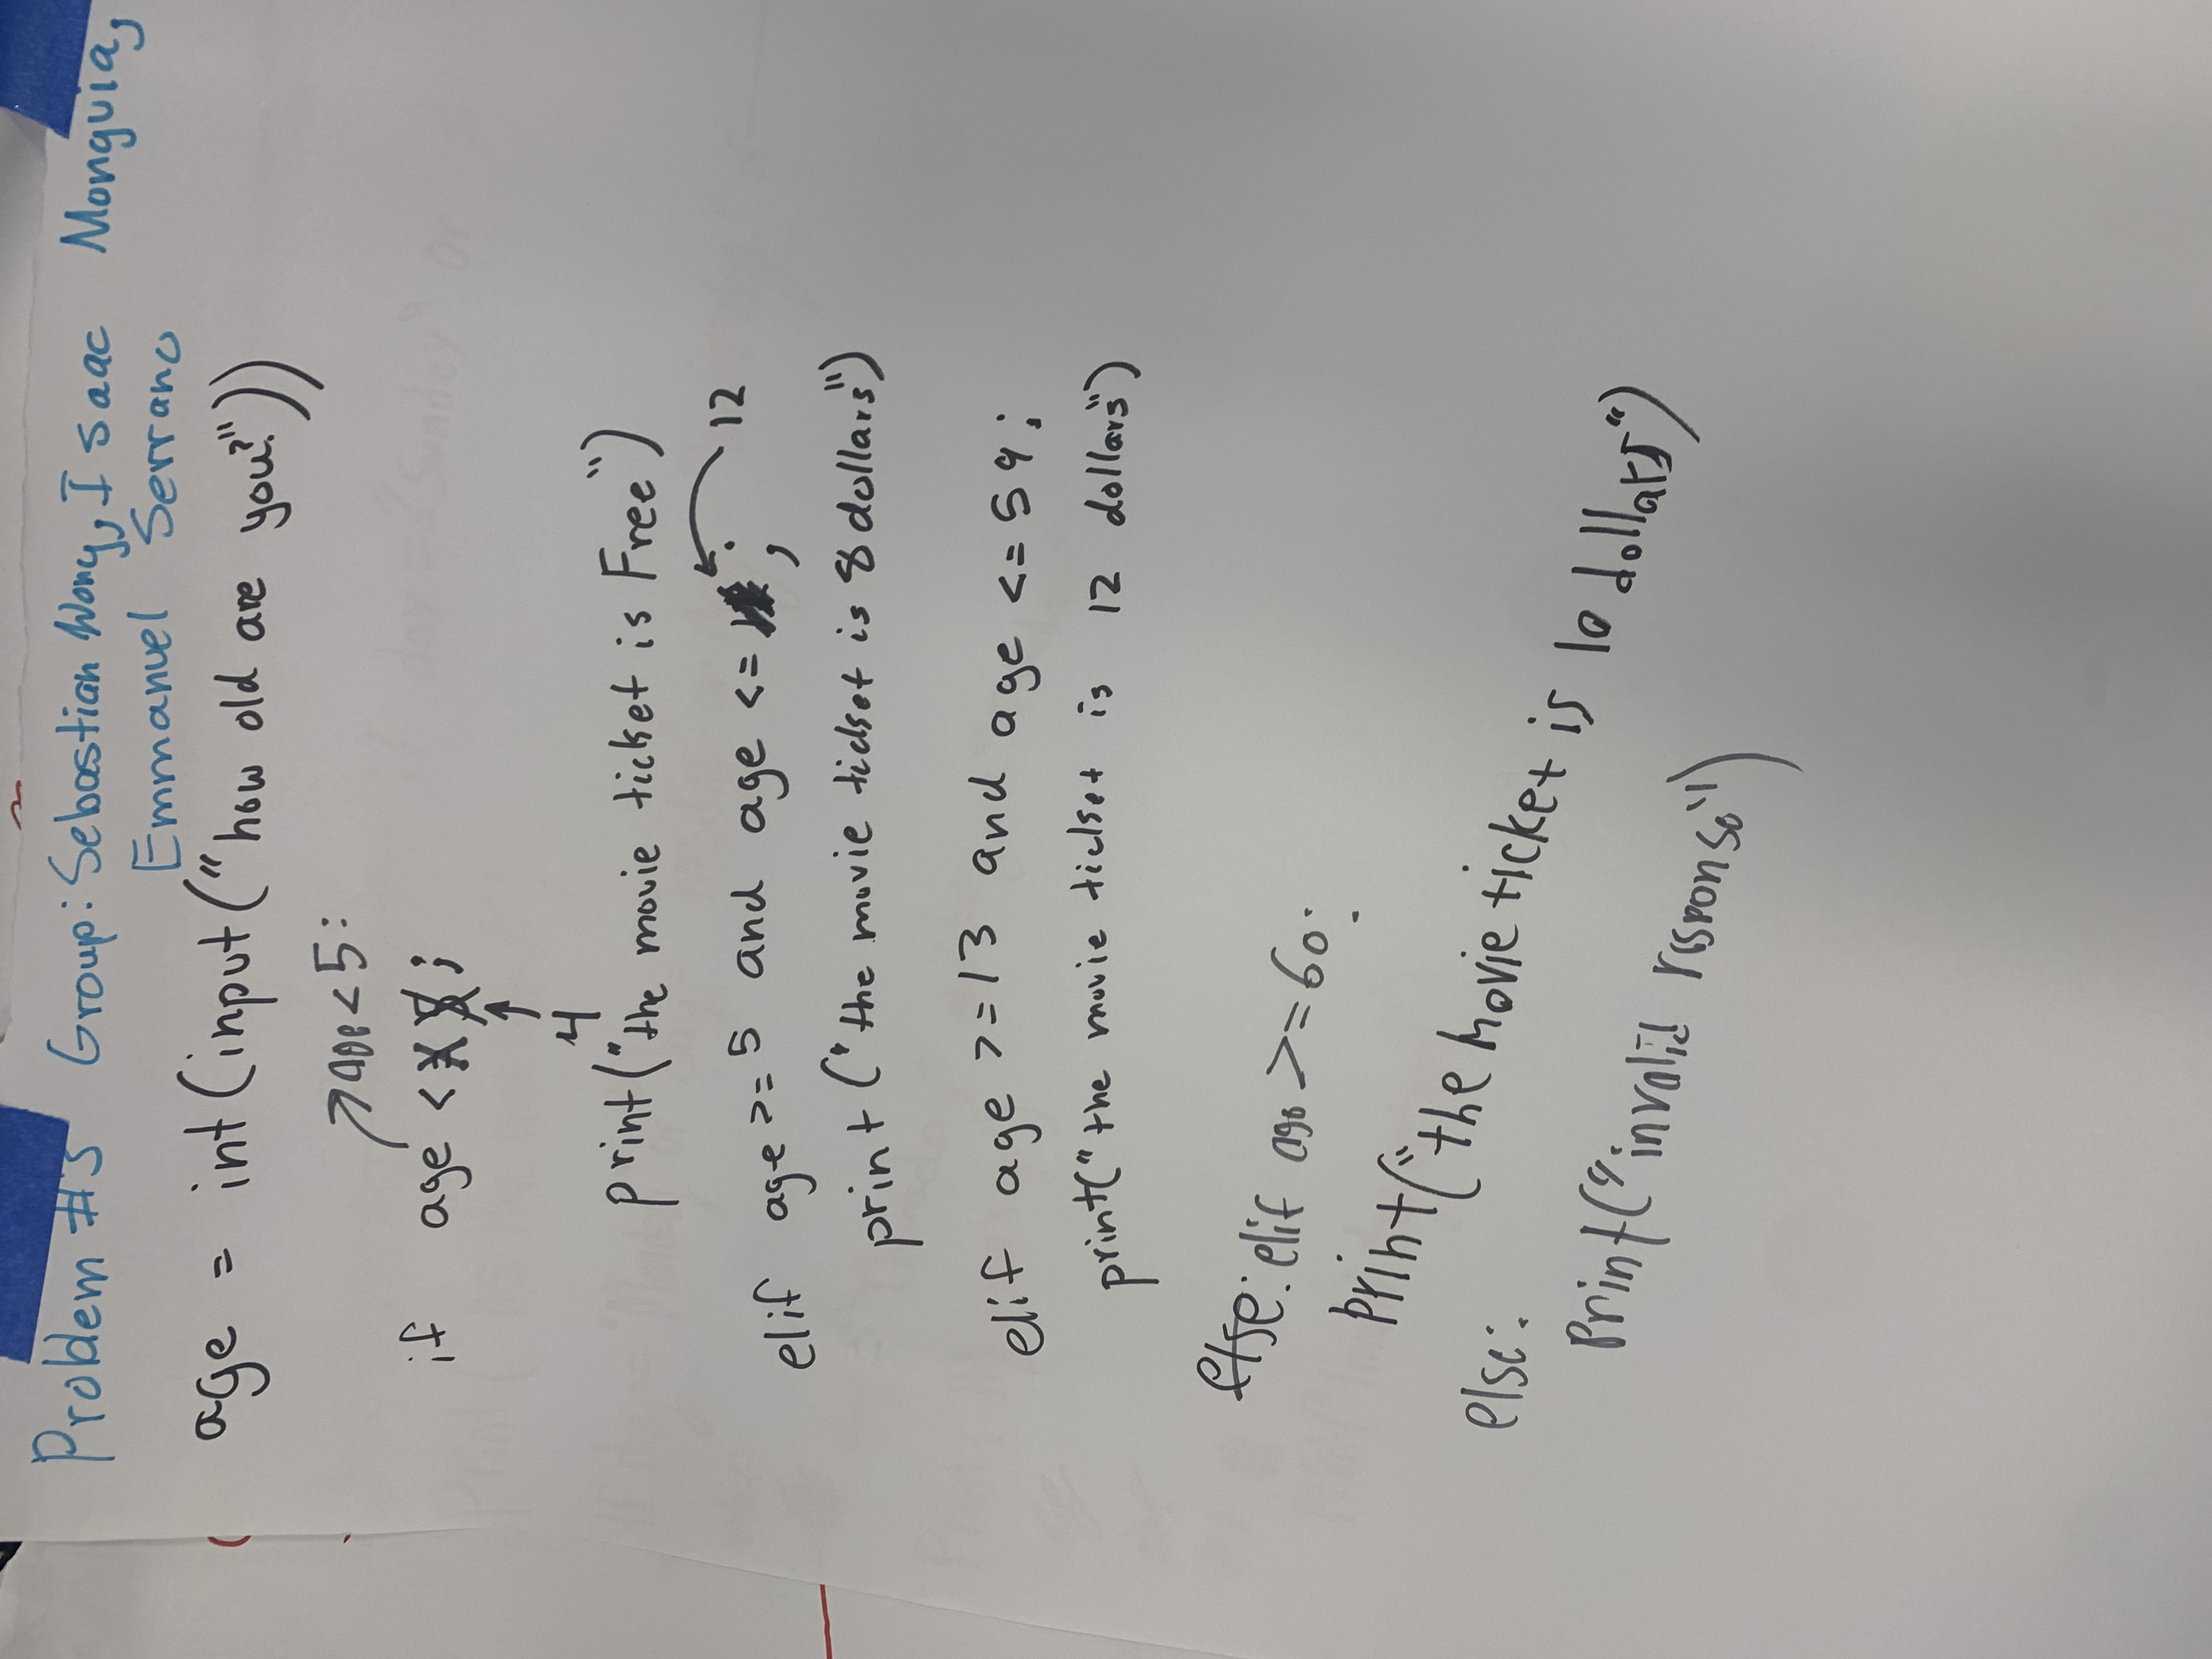 Problem #3 Group: Sebastian Wong, Isaac Monguia,
Emmanuel Serrano
age = int(input("how old are you?"))
age<5:
if age < ;
4
print("the movie ticket is Free")
12
elif age >= 5 and age <= ;
print ("the movie ticket is 8 dollars")
elif age >=13 and age <= 59;
print("the movie ticket is 12 dollars")
else: elif age >=60:
print("the movie ticket is 10 dollars")
else:
print("invalid response")